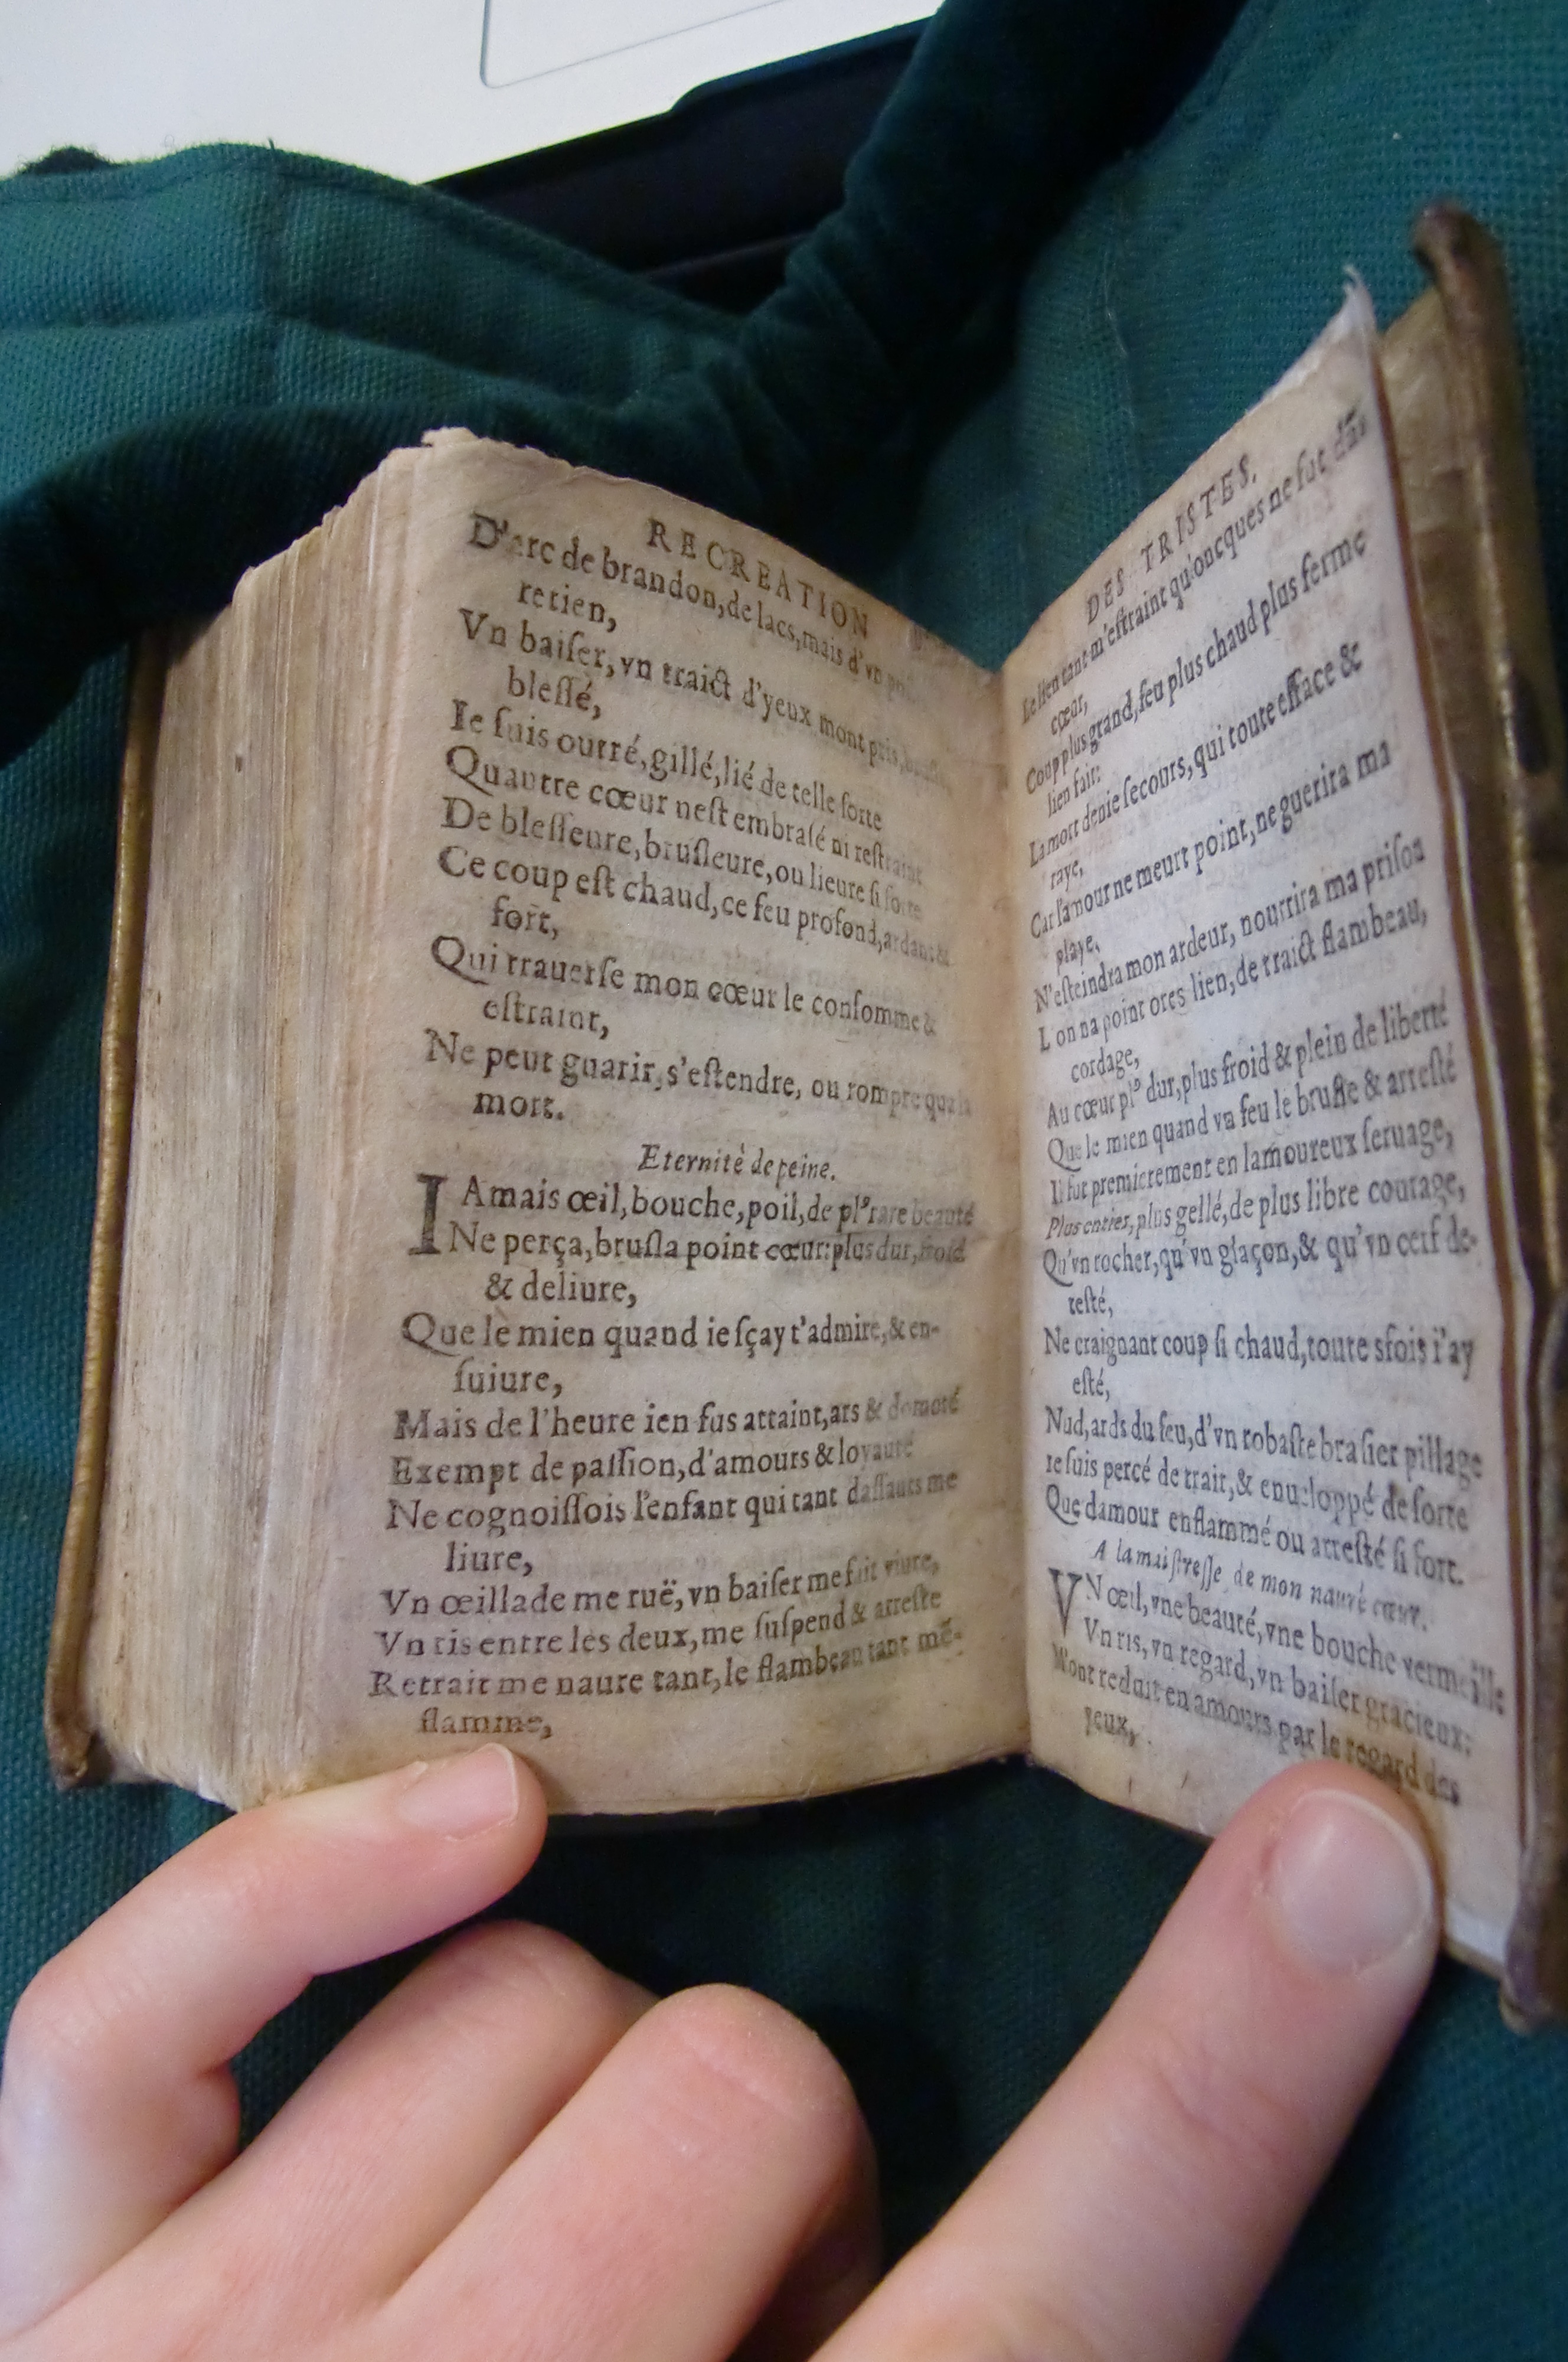 RECREATION
D'erc de brandon, de lacs, mais d'vn
retien,
Vn baiſer, vn traict d'yeux mont pris,
bleſſé,
Ie ſuis outré, gillé, lié de telle ſorte
Quautre cœur neſt embraſé ni reſtraint
De bleſſeure, bruſleure, ou lieure ſi forte
Ce coup eſt chaud, ce feu profond, ardant &
fort,
Qui trauerſe mon cœur le conſomme &
eſtraint,
Ne peut guarir, s'eſtendre, ou rompre qua la
mort.
Eternité de peine.
IAmais œil, bouche, poil, de plꝰ rare beauté
Ne perça, bruſla point cœur: plus dur, froid
& deliure,
Que le mien quand ie ſçay t'admire, & en-
ſuiure,
Mais de l'heure ien fus attaint, ars & domoté
Exempt de paſſion, d'amours & loyauté
Ne cognoiſſois l'enfant qui tant daſſauts me
liure,
Vn œillade me ruë, vn baiſer me fait viure,
Vn ris entre les deux, me ſuſpend & arreſte
Retrait me naure tant, le flambeau tant mē-
flamme,
DES TRISTES.
Le lien tant m'eſtraint qu'oncques ne fut dās
cœur,
Coup plus grand, feu plus chaud plus ferme
lien fait:
La mort denie ſecours, qui toute efface &
raye,
Car l'amour ne meurt point, ne guerira ma
playe,
N'eſteindra mon ardeur, nourrira ma priſon
L on na point ores lien, de traict flambeau,
cordage,
Au cœur plꝰ dur, plus froid & plein de liberté
Que le mien quand vn feu le bruſle & arreſté
Il fut premierement en lamoureux ſeruage,
Plus entier, plus gellé, de plus libre courage,
Qu'vn rocher, qu'vn glaçon, & qu'vn cerf de-
teſté,
Ne craignant coup ſi chaud, toute sfois i'ay
eſté,
Nud, ards du feu, d'vn robuſte braſier pillage
Ie ſuis percé de trait, & enueloppé de ſorte
Que damour enflammé ou arreſté ſi fort.
A la maiſtreſſe de mon nauré cœur.
VN œil, vne beauté, vne bouche vermeille
Vn ris, vn regard, vn baiſer gracieux:
M'ont reduit en amours par le regard des
yeux,